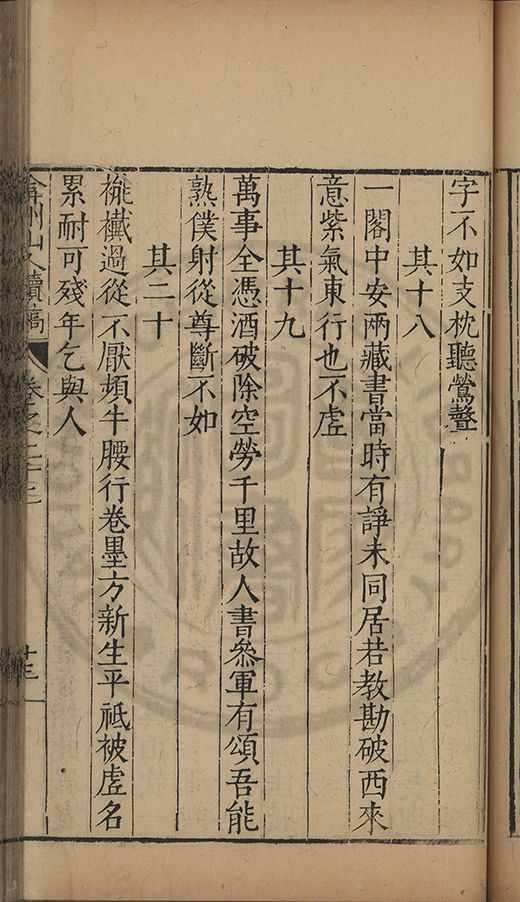 字不如支枕聽鶯聲
其十八
一閣中安兩藏書當時有諍未同居若教勘破西來
意紫氣東行也不虗
其十九
萬事全憑酒破除空勞千里故人書叅軍有頌吾能
熟僕射從尊斷不如
其二十
槐過從不厭頻牛腰行卷墨方新生平祗被虗名
累耐可殘年乞與人
弇州山人續稿 卷之二十三